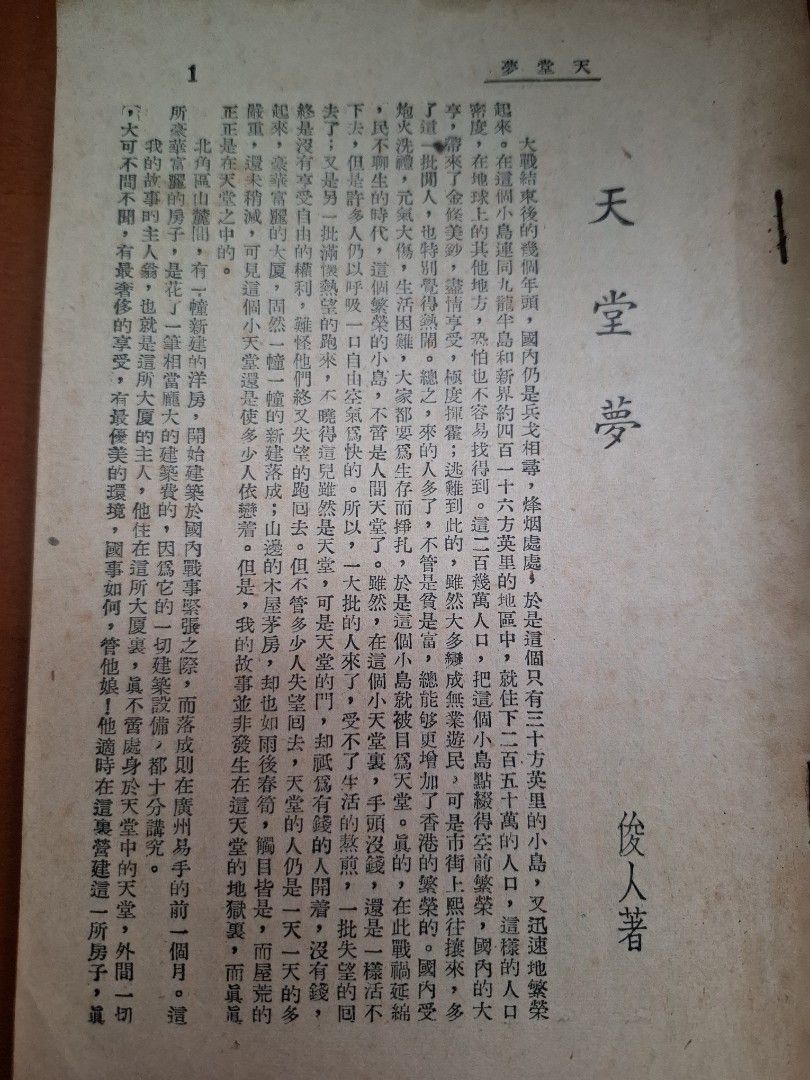 夢堂天
1
天堂夢
俊人著
大戰結束後的幾個年頭，國內仍是兵戈相尋，烽烟處處，於是這個只有三十方英里的小島，又迅速地繁榮
起來。在這個小島連同九龍半島和新界約四百一十六方英里的地區中，就住下二百五十萬的人口，這樣的人口
密度，在地球上的其他地方，恐怕也不容易找得到。這二百幾萬人口，把這個小島點綴得空前繁榮，國內的大
亨，帶來了金條美鈔，盡情享受，極度揮霍；逃難到此的，雖然大多變成無業遊民，可是市街上熙往攘來，多
了這一批閒人，也特別覺得熱鬧。總之，來的人多了，不管是貧是富，總能夠更增加了香港的繁榮的。國內受
炮火洗禮，元氣大傷，生活困難，大家都要爲生存而掙扎，於是這個小島就被目爲天堂。眞的，在此戰禍延綿
，民不聊生的時代，這個繁榮的小島，不啻是人間天堂了。雖然，在這個小天堂裏，手頭沒錢，還是一樣活不
下去，但是許多人仍以呼吸一口自由空氣爲快的。所以，一大批的人來了，受不了生活的熬煎，一批失望的囘
去了；又是另一批滿懷熱望的跑來，不曉得這兒雖然是天堂，可是天堂的門，却祇爲有錢的人開着，沒有錢，
終是沒有享受自由的權利，難怪他們終又失望的跑囘去。但不管多少人失望囘去，天堂的人仍是一天一天的多
起來，豪華富麗的大厦，固然一幢一幢的新建落成；山邊的木屋茅房，却也如雨後春筍，觸目皆是，而屋荒的
嚴重，還未稍減，可見這個小天堂還是使多少人依戀着。但是，我的故事並非發生在這天堂的地獄裏，而眞眞
正正是在天堂之中的。
北角區山麓間，有一幢新建的洋房，開始建築於國內戰事緊張之際，而落成則在廣州易手的前一個月。這
所豪華富麗的房子，是花了一筆相當龐大的建築費的，因爲它的一切建築設備，都十分講究。
我的故事的主人翁，也就是這所大厦的主人，他住在這所大厦裏，眞不啻處身於天堂中的天堂，外間一切
，大可不問不聞，有最奢侈的享受，有最優美的環境，國事如何，管他娘！他適時在這裏營建這一所房子，眞